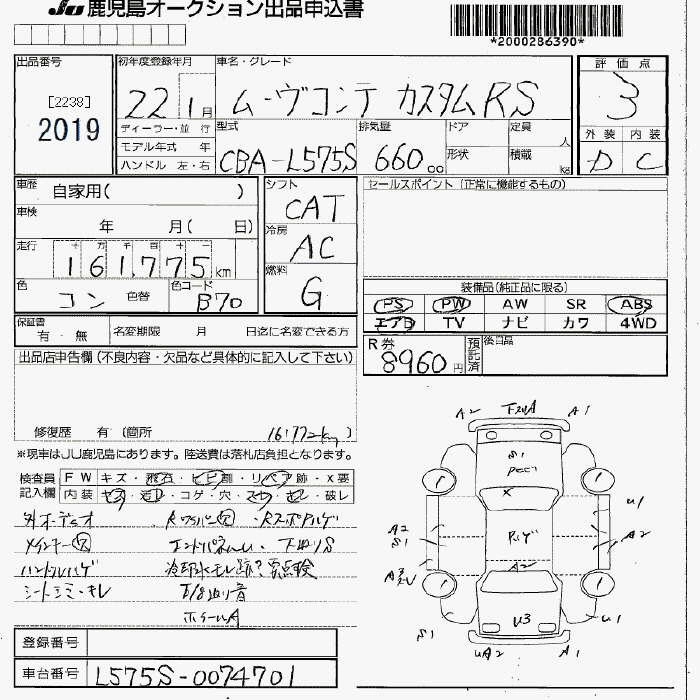 JU 鹿児島オークション出品申込書
*2000286390*
出品番号
[2238]
2019
初年度登録年月
22 1月
車名・グレード
ムーヴコンテ カスタムRS
評価点
3
外装 内装
D C
ディーラー・並行
モデル年式 年
ハンドル 左・右
型式
CBA-L575S
排気量
660cc
ドア
形状
定員
人
積載
kg
車歴
自家用( )
車検
年 月( 日)
走行
十 万 千 百 十 一
161,775km
色
コン
色替
色コード
B70
シフト
CAT
冷房
AC
燃料
G
セールスポイント(正常に機能するもの)
装備品(純正品に限る)
PS PW AW SR ABS
エアB TV ナビ カワ 4WD
保証書
有・無
名変期限 月 日迄に名変できる方
R券
8960円
預託済
後日品
出品店申告欄(不良内容・欠品など具体的に記入して下さい)
修復歴 有(箇所 )
161772km
※現車はJU鹿児島にあります。陸送費は落札店負担となります。
検査員記入欄
FW キズ・飛石・ヒビ割・リペア跡・X要
内装 キズ・汚レ・コゲ・穴・スレ・キレ・破レ
外オーディオ
Rワイパー欠
メインキー欠
下廻りS
ハンドルハゲ
冷却水モレ跡?要点検
シートシミ・キレ
下廻り音
ホイールA
登録番号
車台番号
L575S-0074701
A2
A1
S1
X
U1
A2
S1
A2
A2
S1
U3
U1
UA2
A1